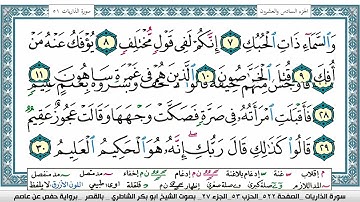 الجزء السادس والعشرون سورة الذاريات ٥١
وَالسَّمَاءِ ذَاتِ الْحُبُكِ ٧ إِنَّكُمْ لَفِي قَوْلٍ مُّخْتَلِفٍ ٨ يُؤْفَكُ عَنْهُ مَنْ
أُفِكَ ٩ قُتِلَ الْخَرَّاصُونَ ١٠ الَّذِينَ هُمْ فِي غَمْرَةٍ سَاهُونَ ١١
فَأَقْبَلَتِ امْرَأَتُهُ فِي صَرَّةٍ فَصَكَّتْ وَجْهَهَا وَقَالَتْ عَجُوزٌ عَقِيمٌ ٢٩
قَالُوا كَذَٰلِكِ قَالَ رَبُّكِ إِنَّهُ هُوَ الْحَكِيمُ الْعَلِيمُ ٣٠
سورة الذاريات - الصفحة ٥٢٢ الحزب ٥٣ الجزء ٢٧ - بصوت الشيخ ابو بكر الشاطري - بالقصر - برواية حفص عن عاصم